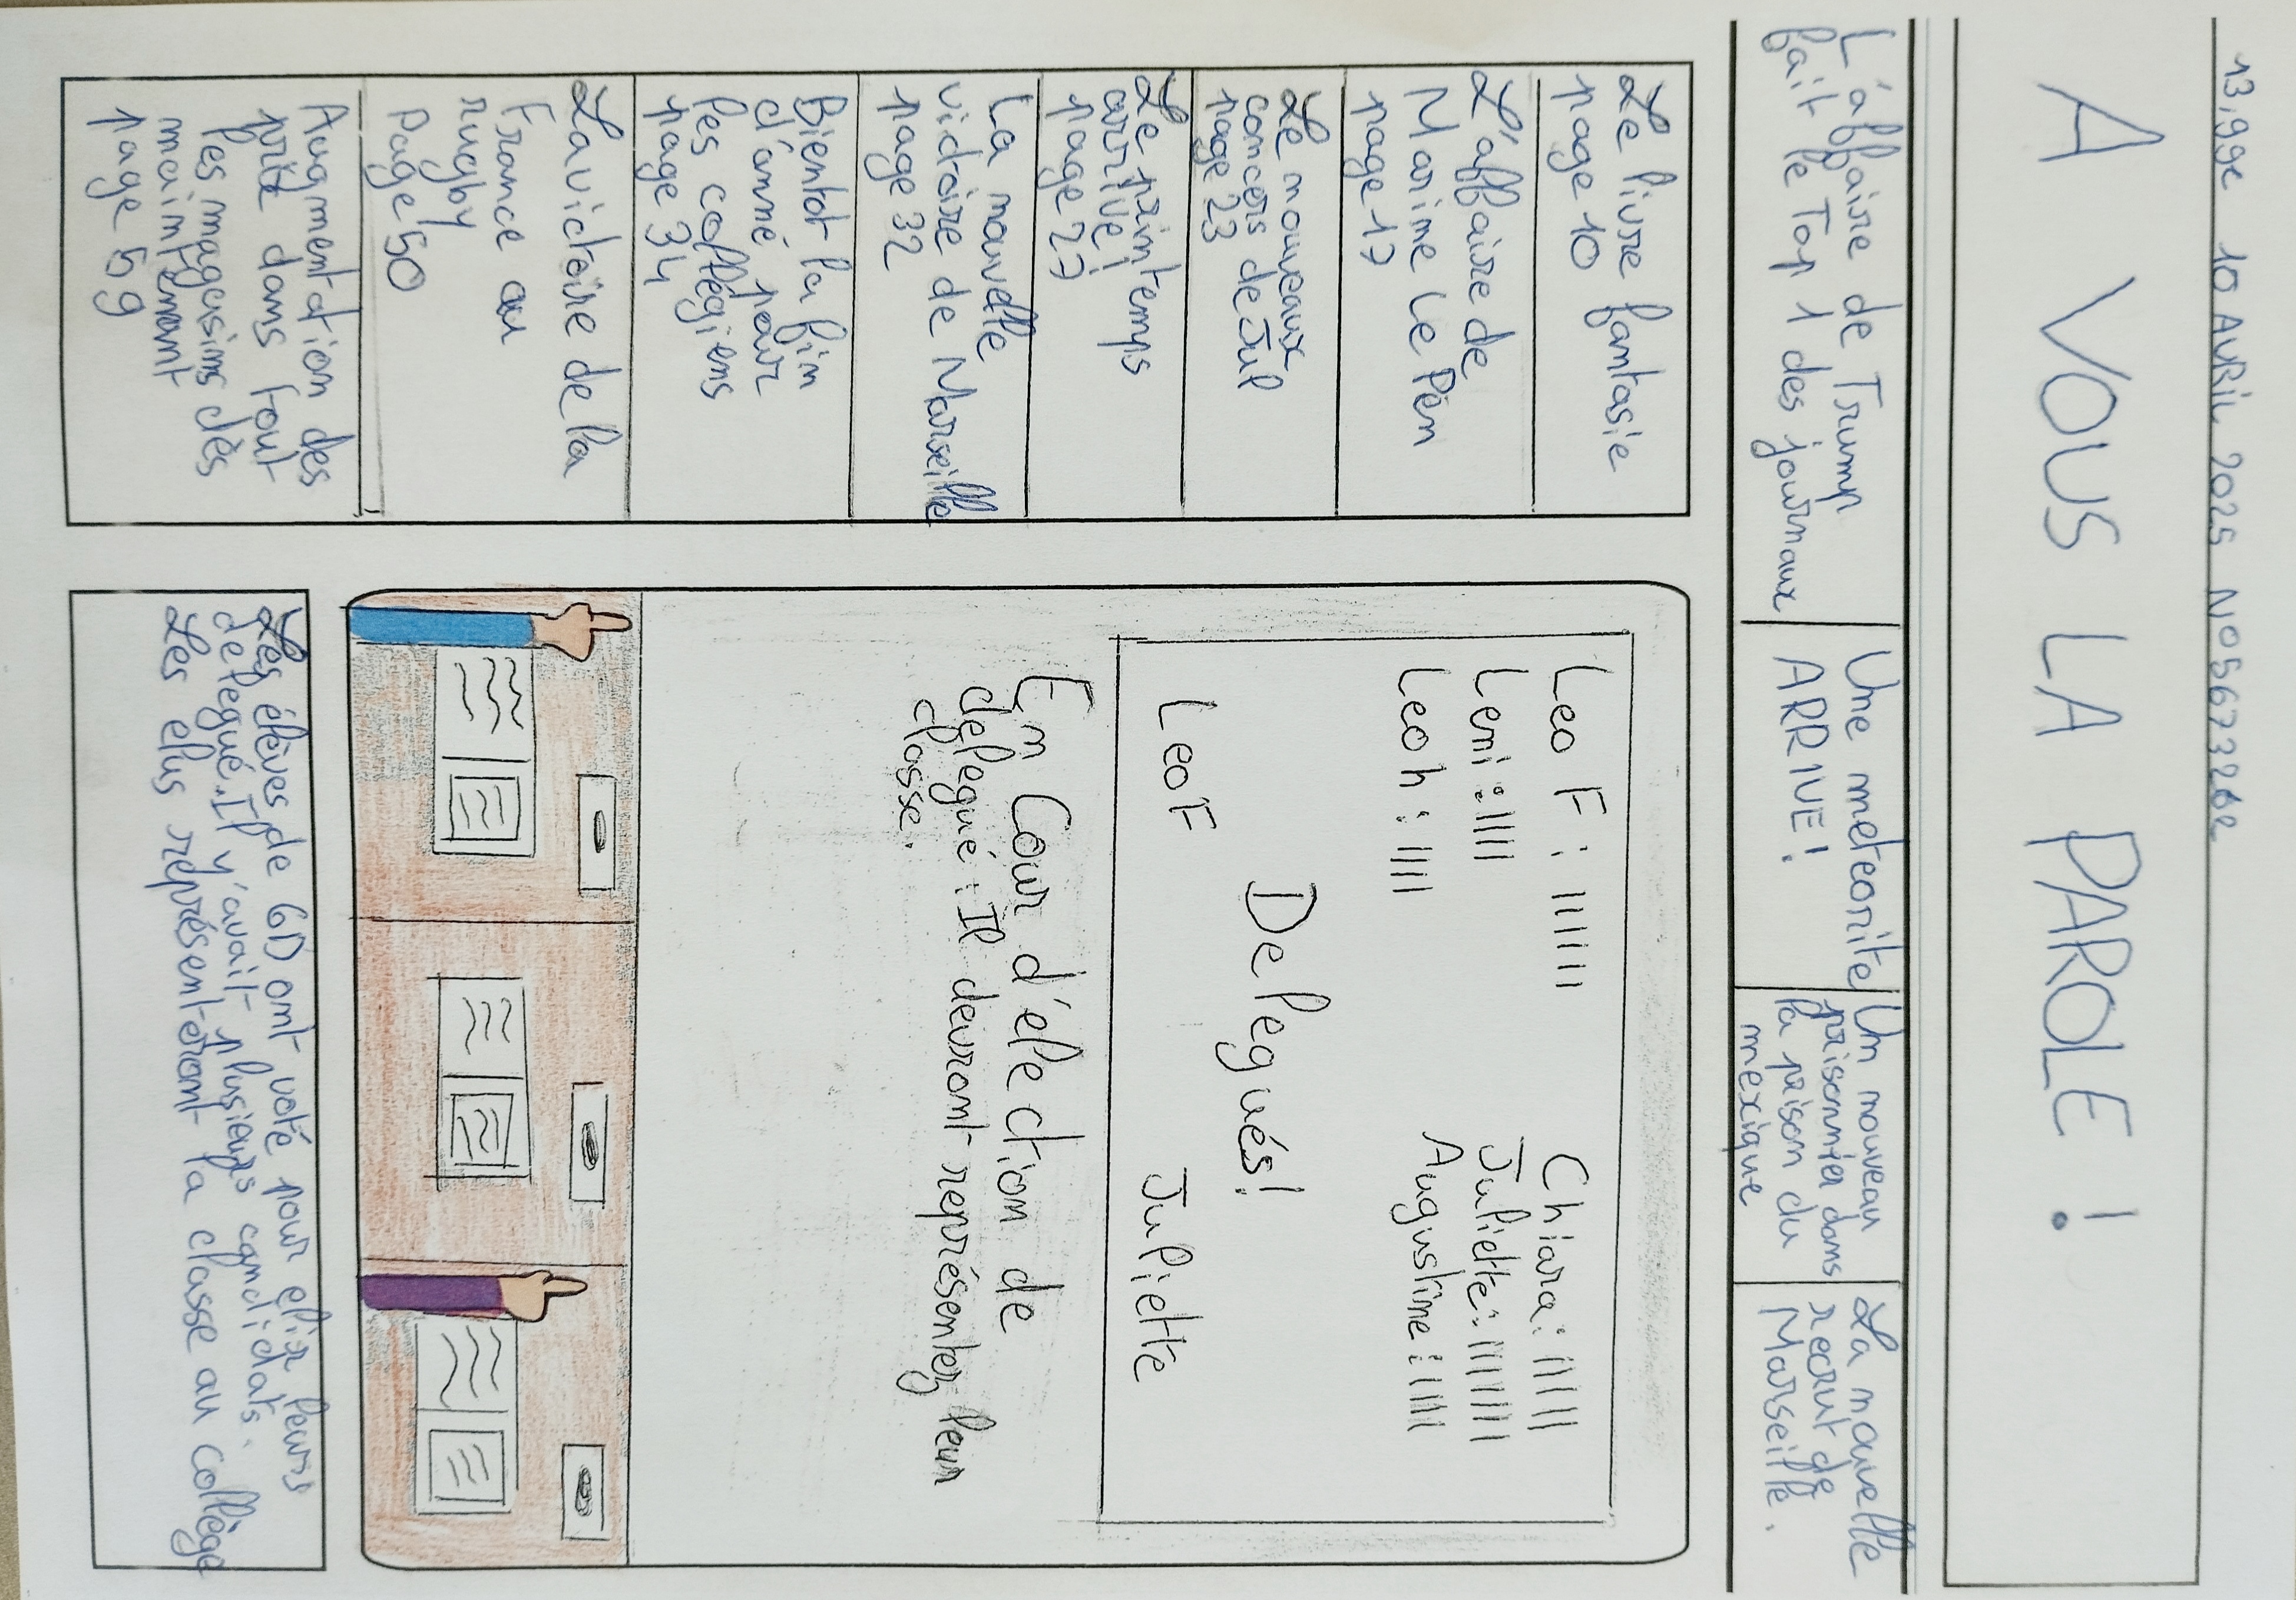 13,99€ 10 AVRIL 2025 N°05673262
A VOUS LA PAROLE !
L'affaire de Trump
fait le Top 1 des journaux
Une meteorite
ARRIVE !
Un nouveau
prisonnier dans
la prison du
mexique
La nouvelle
recrut de
Marseille.
Le livre fantasie
page 10
L'affaire de
Marine Le Pen
page 17
Le nouveaux
concers de Jul
page 23
Le printemps
arrive !
page 27
La nouvelle
victoire de Marseille
page 32
Bientot la fin
d'anné pour
les collégiens
page 34
La victoire de la
France au
rugby
page 50
Augmentation des
prix dans tout
les magasins dès
maintenant
page 59
Leo F : IIIIII
Leni : IIII
Leo h : IIII
Chiara : IIIII
Juliette : IIIIIII
Augustine : IIIII
Delegués !
Leo F Juliette
En Cour d'election de
delegué : Il devront représenter leur
classe.
Les élèves de 6D ont voté pour elir leurs
delegué. Il y'avait plusieurs candidats.
Les elus représenteront la classe au collège